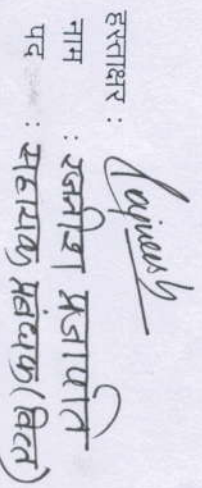 हस्ताक्षर : Rajneesh
नाम : रजनीश प्रजापति
पद : सहायक प्रबंधक (वित्त)